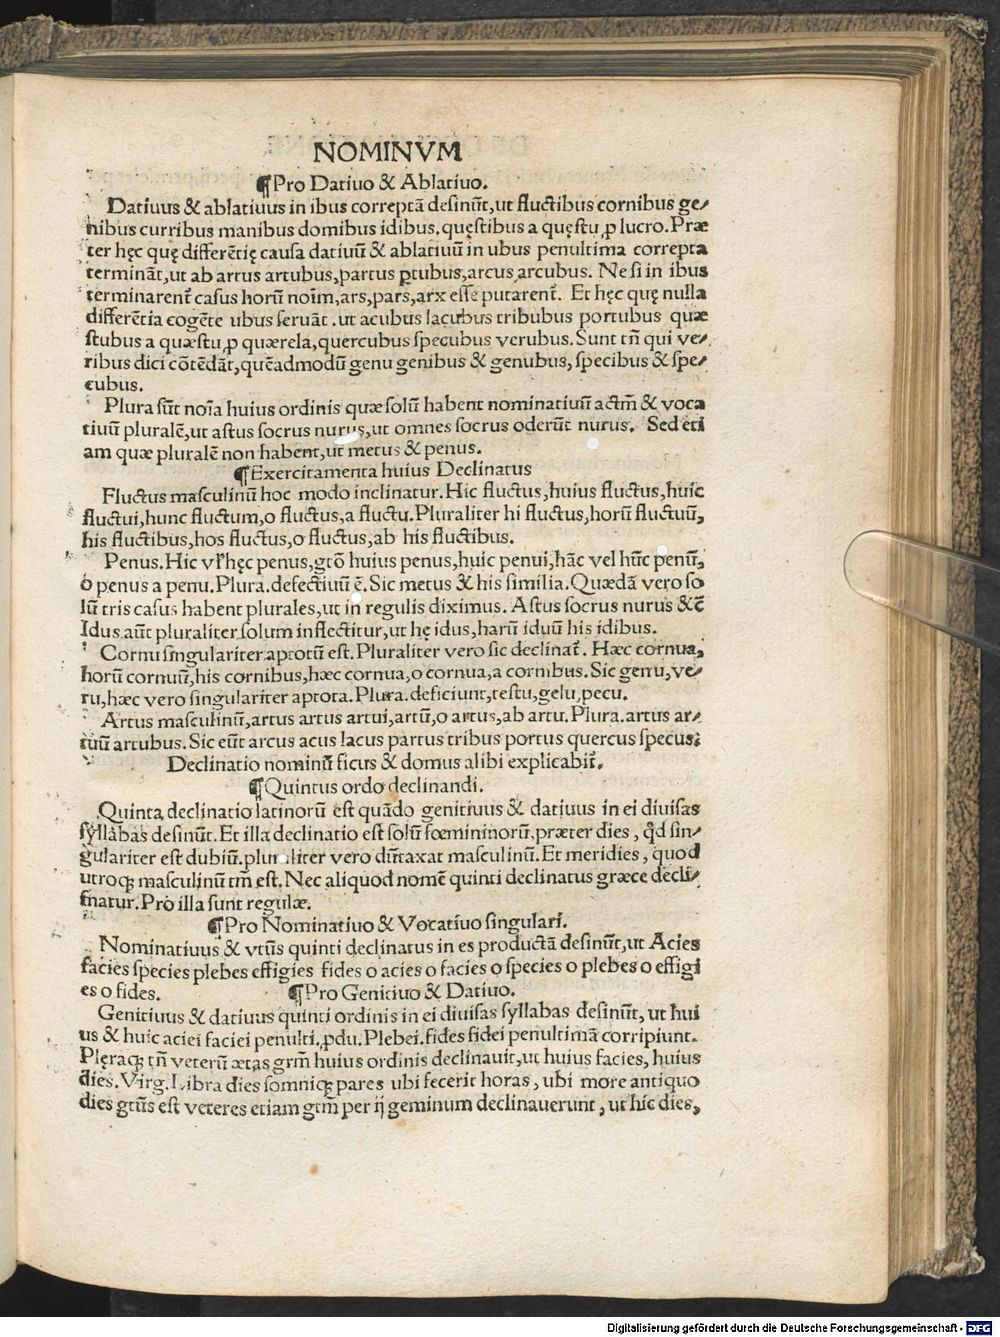 NOMINVM
¶Pro Datiuo & Ablatiuo.
Datiuus & ablatiuus in ibus correptā desinūt,ut fluctibus cornibus ge⸗
nibus curribus manibus domibus idibus.quęstibus a quęstu,ꝓ lucro.Præ
ter hęc quę differētię causa datiuū & ablatiuū in ubus penultima correpta
termināt,ut ab artus artubus,partus ꝑtubus,arcus arcubus. Ne si in ibus
terminarent̄ casus horū noīm,ars,pars,arx esse putarent̄. Et hęc quę nulla
differētia cogēte ubus seruāt.ut acubus lacubus tribubus portubus quæ
stubus a quæstu,ꝓ quærela,quercubus specubus verubus.Sunt tn̄ qui ve⸗
ribus dici cōtēdāt,quēadmodū genu genibus & genubus,specibus & spe⸗
cubus.
Plura sūt noīa huius ordinis quæ solū habent nominatiuū actm̄ & voca
tiuū pluralē,ut astus socrus nurus,ut omnes socrus oderūt nurus. Sed eti
am quæ pluralē non habent,ut metus & penus.
¶Exercitamenta huius Declinatus
Fluctus masculinū hoc modo inclinatur.Hic fluctus,huius fluctus,huic
fluctui,hunc fluctum,o fluctus,a fluctu.Pluraliter hi fluctus,horū fluctuū,
his fluctibus,hos fluctus,o fluctus,ab his fluctibus.
Penus.Hic vl̄ hęc penus,gtō huius penus,huic penui,hāc vel hūc penū,
o penus a penu.Plura.defectiuū ē.Sic metus & his similia.Quædā vero so
lū tris casus habent plurales,ut in regulis diximus. Astus socrus nurus &c̄
Idus aūt pluraliter solum inflectitur,ut hę idus,harū iduū his idibus.
Cornu singulariter aptotū est.Pluraliter vero sic declinat̄. Hæc cornua,
horū cornuū,his cornibus,hæc cornua,o cornua,a cornibus.Sic genu,ve⸗
ru,hæc vero singulariter aptota.Plura.deficiunt,testu,gelu,pecu.
Artus masculinū,artus artus artui,artū,o artus,ab artu.Plura.artus ar⸗
tuū artubus.Sic eūt arcus acus lacus partus tribus portus quercus specus:
Declinatio nominū ficus & domus alibi explicabit̄.
¶Quintus ordo declinandi.
Quinta declinatio latinorū est quādo genitiuus & datiuus in ei diuisas
syllabas desinūt.Et illa declinatio est solū fœmininorū,præter dies , qd̄ sin⸗
gulariter est dubiū.pluraliter vero dūtaxat masculinū.Et meridies , quod
utroqꝫ masculinū tm̄ est.Nec aliquod nomē quinti declinatus græce decli⸗
natur.Pro illa sunt regulæ.
¶Pro Nominatiuo & Vocatiuo singulari.
Nominatiuus & vtūs quinti declinatus in es productā desinūt,ut Acies
facies species plebes effigies fides o acies o facies o species o plebes o effigi
es o fides. ¶Pro Genitiuo & Datiuo.
Genitiuus & datiuus quinti ordinis in ei diuisas syllabas desinūt, ut hui
us & huic aciei faciei penulti.ꝓdu.Plebei.fides fidei penultimā corripiunt.
Plęraqꝫ tn̄ veterū ætas gtm̄ huius ordinis declinauit,ut huius facies, huius
dies.Virg.Libra dies somniqꝫ pares ubi fecerit horas , ubi more antiquo
dies gtūs est veteres etiam gtm̄ per ij geminum declinauerunt , ut hic dies,
Digitalisierung gefördert durch die Deutsche Forschungsgemeinschaft - DFG